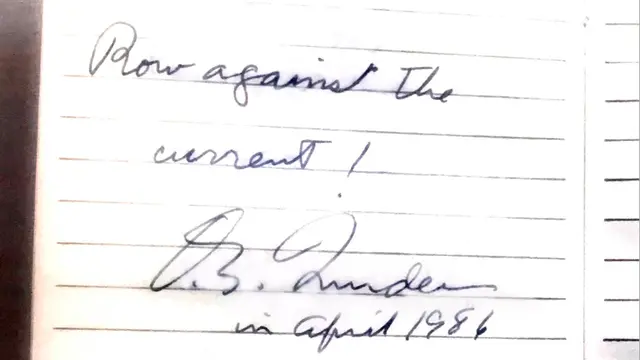 Row against the
current!
in april 1986